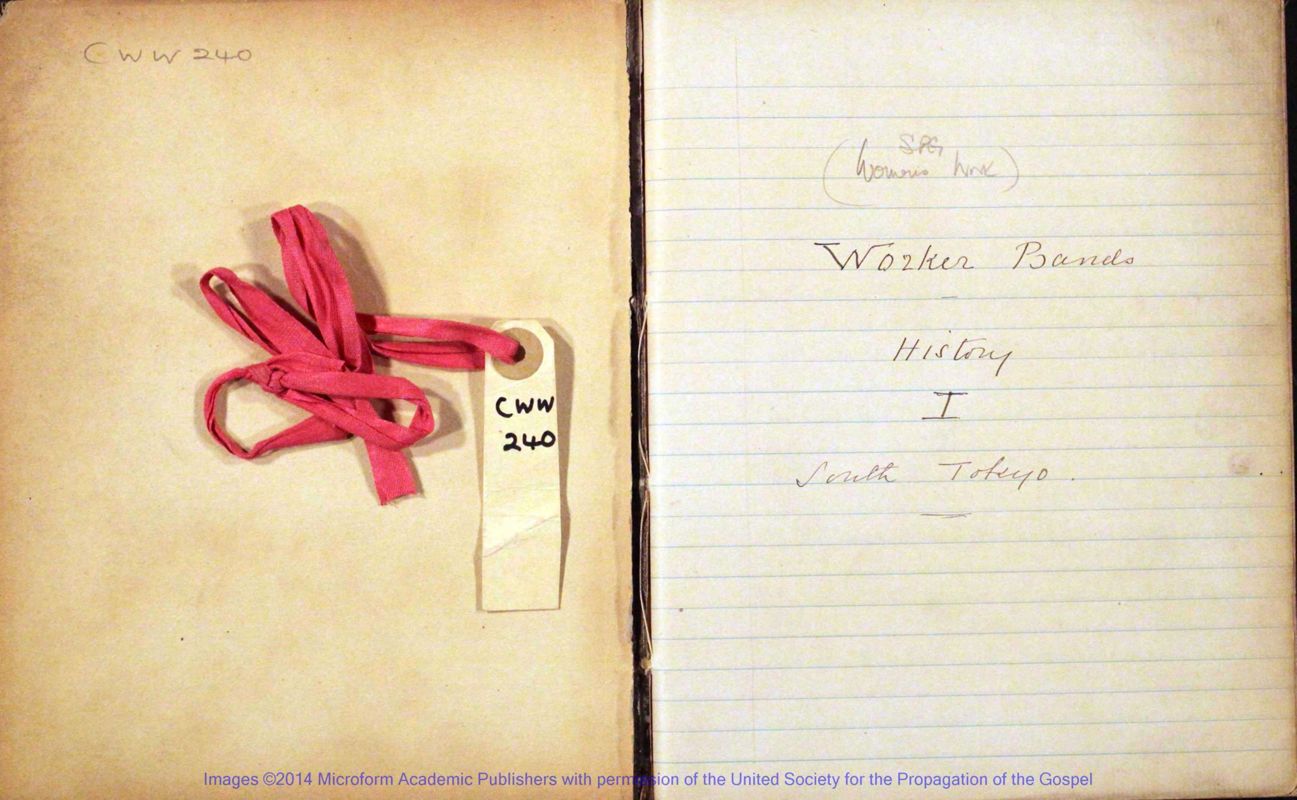 CWW 240
CWW
240
SPG
(Women's Work)
Worker Bands
History
I
South Tokyo.
Images ©2014 Microform Academic Publishers with permission of the United Society for the Propagation of the Gospel